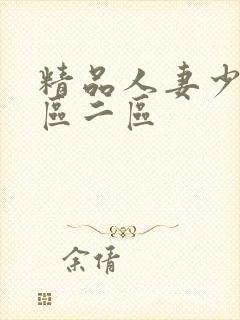 精品人妻少
區二區
余倩